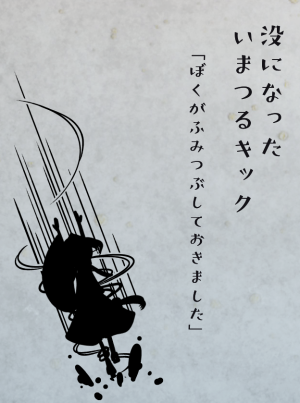 没になった
いまつるキック
「ぼくがふみつぶしておきました」